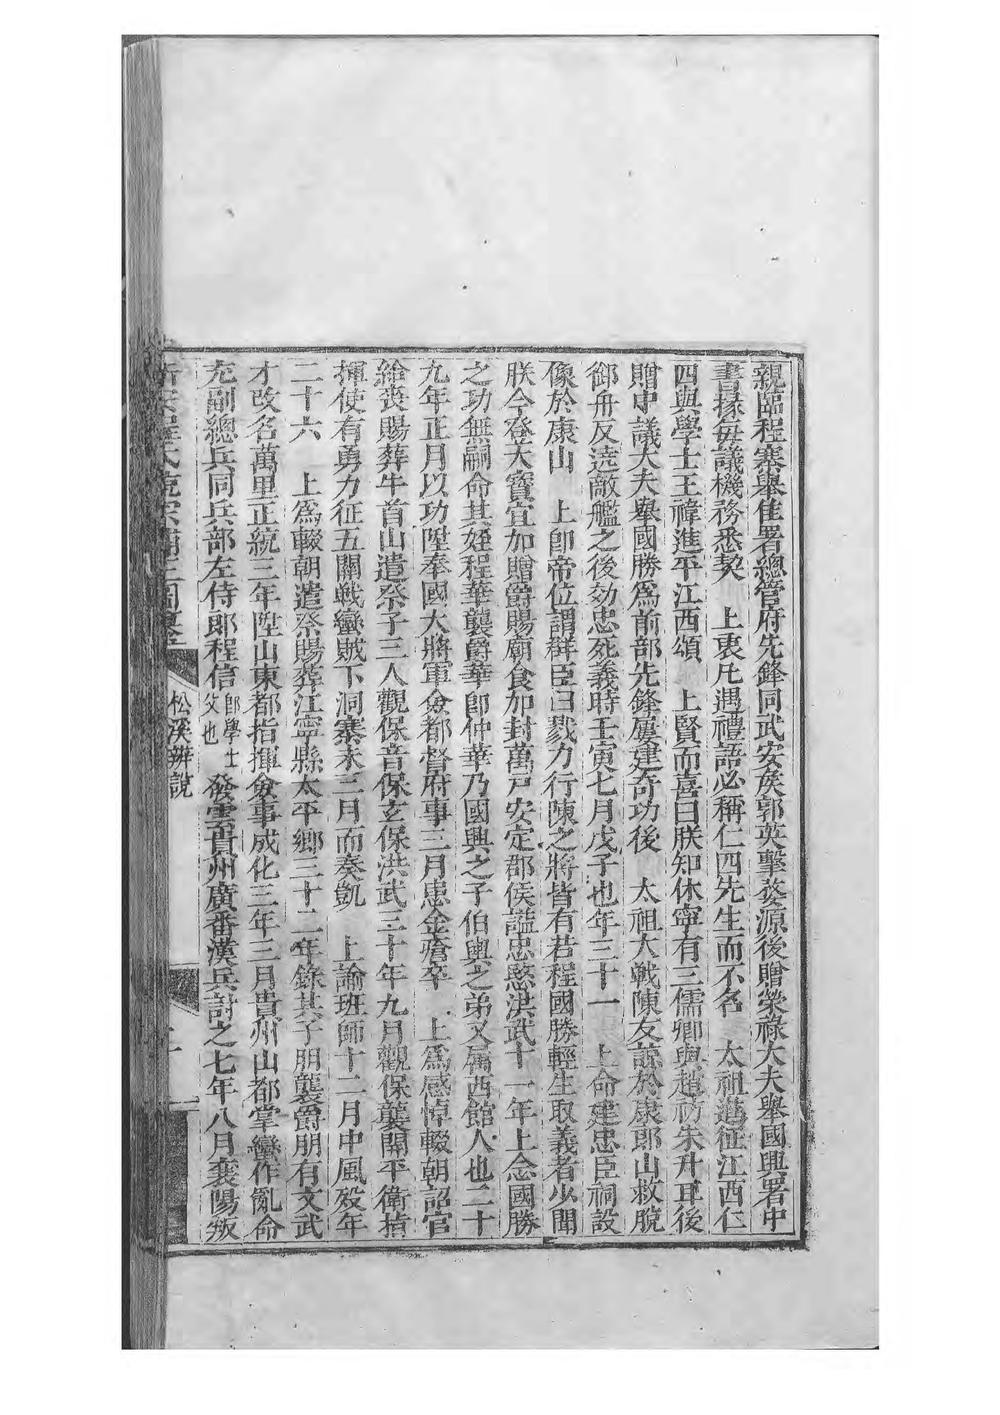 親臨程寨舉佳署總管府先鋒同武安侯郭英擊婺源後贈榮祿大夫舉國興署中
書掾每議機務悉契　上衷凡遇禮語必稱仁四先生而不名　太祖進征江西仁
四與學士王禕進平江西頌　上賢而喜曰朕知休寧有三儒卿與趙汸朱升耳後
贈中議大夫舉國勝爲前部先鋒屢建奇功後　太祖大戰陳友諒於康郎山救脫
御舟反遶敵艦之後効忠死義時壬寅七月戊子也年三十一　上命建忠臣祠設
像於康山　上卽帝位謂群臣曰戮力行陳之將皆有若程國勝輕生取義者少聞
朕今登大寶宜加贈爵賜廟食加封萬戶安定郡侯謚忠愍洪武十一年上念國勝
之功無嗣命其姪程華襲爵華卽仲華乃國興之子伯輿之弟又厲西館人也二十
九年正月以功陞奉國大將軍僉都督府事三月患金瘡卒　上爲感悼輟朝詔官
給喪賜葬牛首山遣祭子三人觀保音保玄保洪武三十年九月觀保襲開平衛指
揮使有勇力征五開戰蠻賊下洞寨未三日而奏凱　上諭班師十二月中風歿年
二十六　上爲輟朝遣祭賜葬江寧縣太平鄉三十二年錄其子朋襲爵朋有文武
才改名萬里正統三年陞山東都指揮僉事成化三年三月貴州山都掌蠻作亂命
充副總兵同兵部左侍郎程信卽學士父也發雲貴州廣番漢兵討之七年八月襄陽叛
松溪辨說